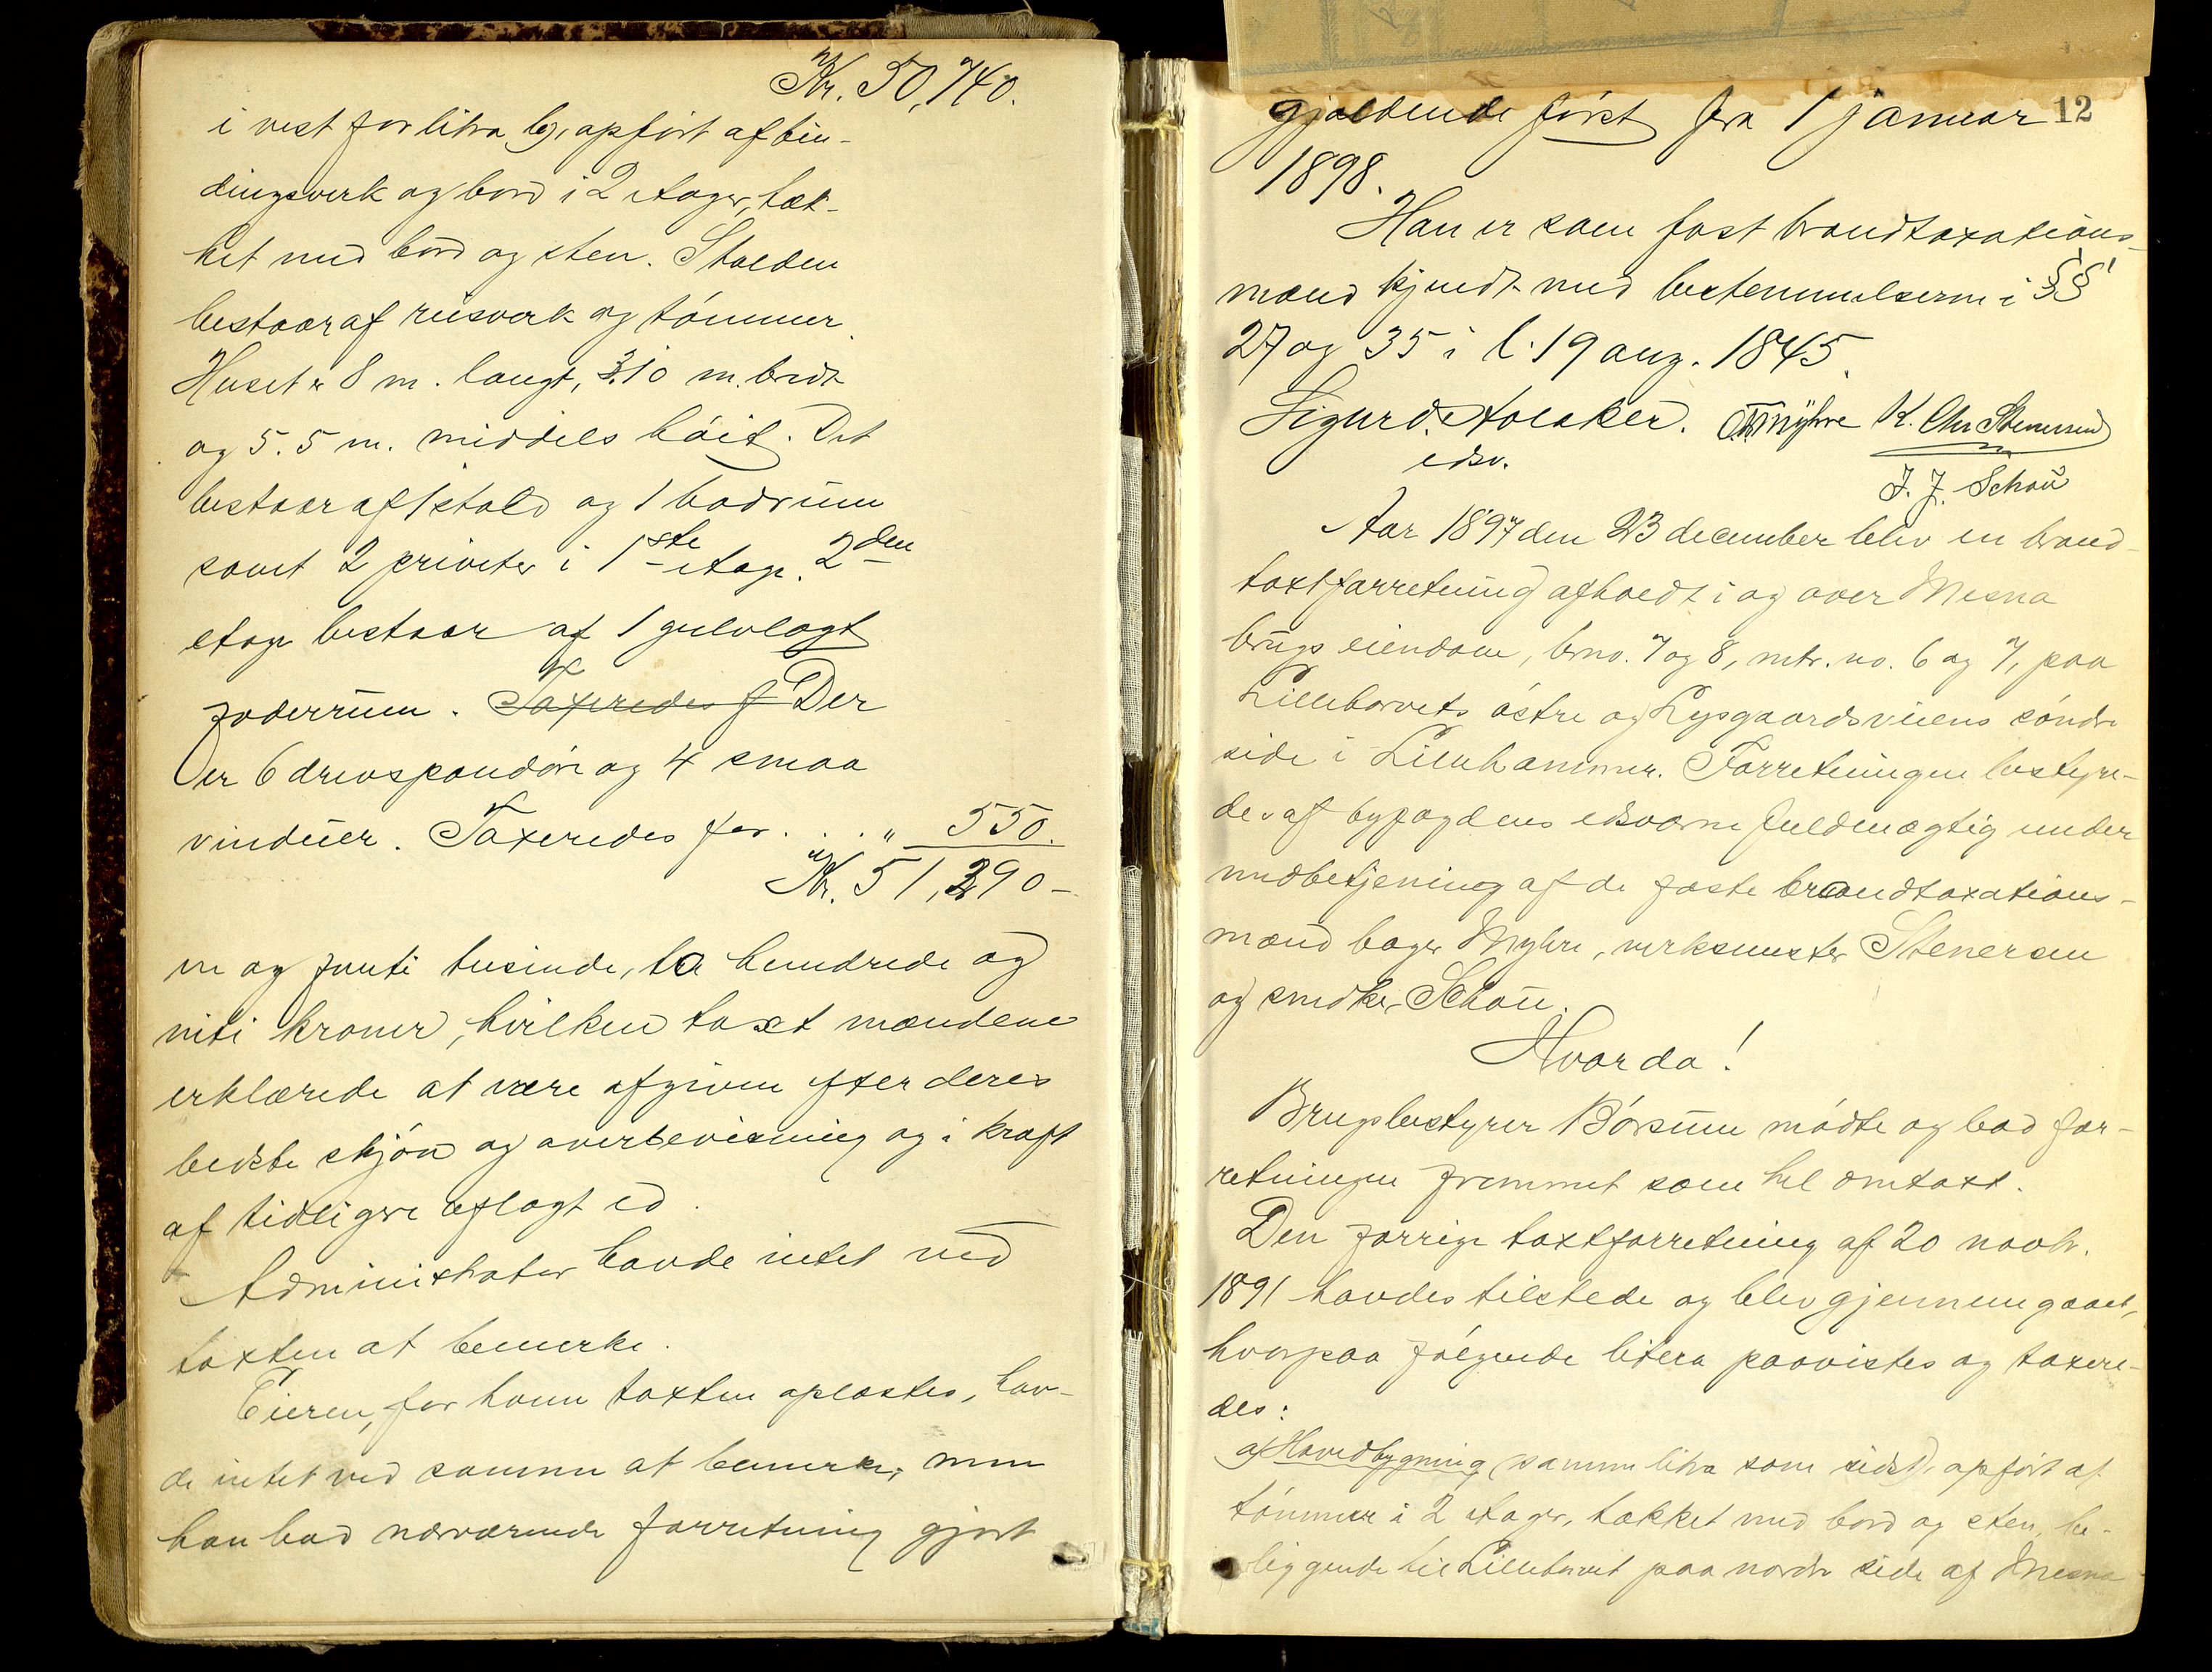 Kr. 50,740.
i vest for litra b, opført af bin-
dingsverk og bord i 2 etager, tæk-
ket med bord og sten. Stalden
bestaar af reisverk og tømmer.
Huset er 8 m. langt, 3.10 m. bredt
og 5.5 m. middels høit. Det
bestaar af 1 stald og 1 bodrum
samt 2 priveter i 1ste etage. 2den
etage bestaar af 1 gulvlagt
foderrum. Taxeredes f Der
er 6 drevspandøre og 4 smaa
vinduer. Taxeredes for . . . " 550.
Kr. 51,290-
en og femti tusinde, to hundrede og
niti kroner, hvilken taxt mændene
erklærede at være afgiven efter deres
bedste skjøn og overbevisning og i kraft
af tidligere aflagt ed.
Administrator havde intet ved
taxten at bemerke.
Eieren, for hvem taxten oplæstes, hav-
de intet ved samme at bemerke, men
han bad nærværende forretning gjort
12
gjældende først fra 1 januar
1898.
Han er som fast brandtaxations-
mand kjendt med bestemmelserne i §§
27 og 35 i l. 19 aug. 1845.
Sigurd Aolaker. Myhre K. Chr Stenersen
edsv.
J. J. Schou
Aar 1897 den 23 december blev en brand-
taxtforretning afholdt i og over Mesna
brugs eiendom, brno. 7 og 8, mtr. no. 6 og 7, paa
Lilletorvets østre og Lysgaardsveiens søndre
side i Lillehammer. Forretningen bestyre-
des af byfogdens edsvorne fuldmægtig under
medbetjening af de faste brandtaxations-
mænd bager Myhre, verksmester Stenersen
og snedker Schou.
Hvorda!
Brugsbestyrer Børsum mødte og bad for-
retningen fremmet som hel omtaxt.
Den forrige taxtforretning af 20 novbr.
1891 havdes tilstede og blev gjennemgaaet,
hvorpaa følgende litera paavistes og taxere-
des:
a) Hovedbygning (samme litra som sidst), opført af
tømmer i 2 etager, tækket med bord og sten, be-
liggende til Lilletorvet paa nordre side af Mesna